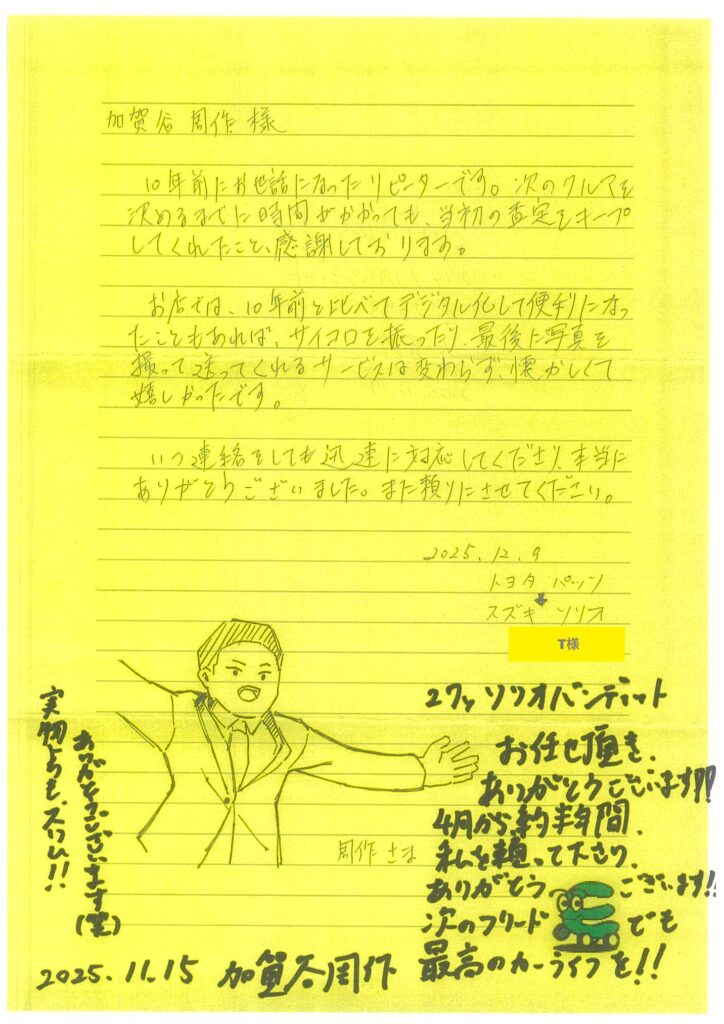 加賀谷 周作 様
10年前にお世話になったリピーターです。次のクルマを
決めるまでに時間がかかっても、当初の査定をキープ
してくれたこと、感謝しております。
お店では、10年前と比べてデジタル化して便利になっ
たこともあれば、サイコロを振ったり、最後に写真を
撮って送ってくれるサービスは変わらず、懐かしくて
嬉しかったです。
いつ連絡をしても迅速に対応してくださり、本当に
ありがとうございました。また頼りにさせてください。
2025.12.9
トヨタ パッソ
スズキ ソリオ
T様
27y ソリオバンディット
お任せ頂き、
ありがとうございます!!
4月から約半年間、
私を頼って下さり、
ありがとうございます!!
次のフリードでも
最高のカーライフを!!
周作さま
実物よりも、スリム!!
ありがとうございます(笑)
2025.11.15 加賀谷周作